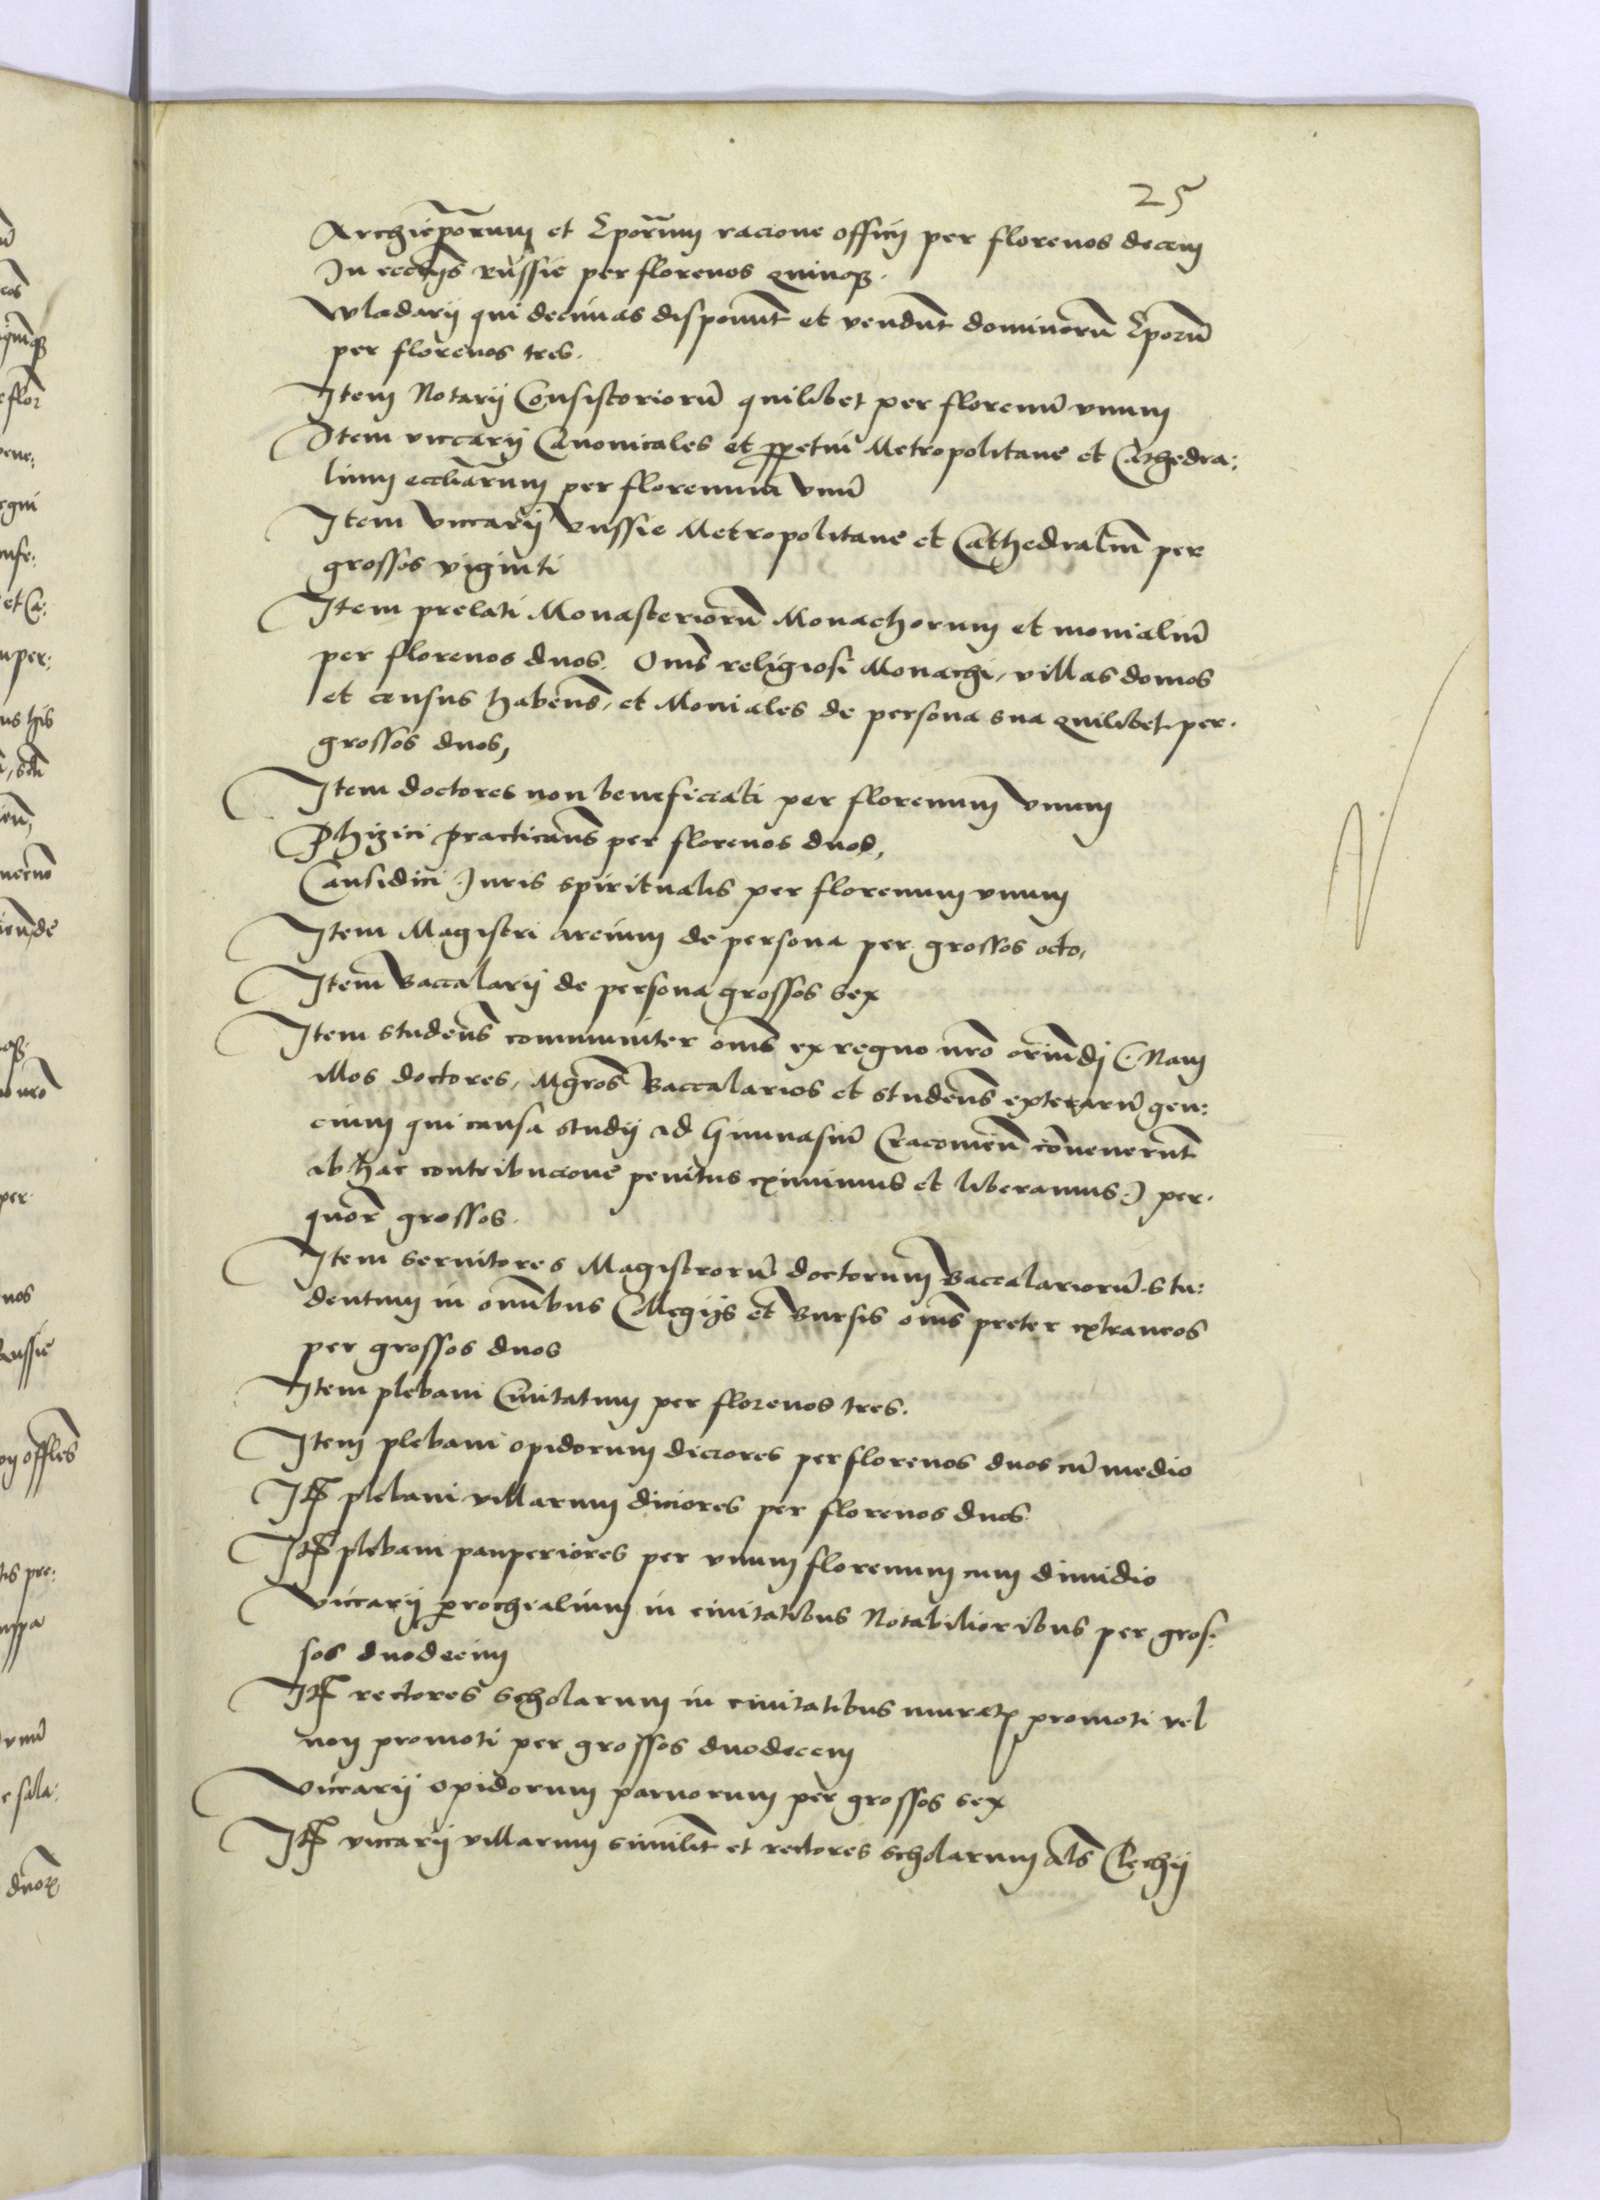 25
Archiep̄orum et Ep̄orum racione officij per florenos decem
In eccl̄ijs Russie per florenos quinq₃.
Wladarij qui decimas disponūt et vendūt dominorū Ep̄orū
per florenos tres.
Item Notarij Consistoriorū quilibet per florenū vnum
Item viccarij Canonicales et ꝑpetui Metropolitane et Cathedra:
lium eccl̄iarum per florenum vnū
Item viccarij Russie Metropolitane et Cathedraliū per
grossos viginti
Item prelati Monasteriorū Monachorum et monialiū
per florenos duos. Om̄s religiosi Monachi, villas domos
et census haben̄s, et Moniales de persona sua quilibet per.
grossos duos,
Item doctores non beneficiati per florenum vnum
Phizici practican̄s per florenos duos,
Causidici Juris spiritualis per florenum vnum
Item Magistri arcium de persona per grossos octo,
Item Baccalarij de persona grossos sex
Item studen̄s communiter om̄s ex regno nr̄o oriundj (. Nam
illos doctores, Mgr̄os Baccalarios et studen̄s exterarū gen:
cium qui causa studij ad Gimnasiū Cracouien̄ conuenerūt
ab hac contribucione penitus eximimus et liberamus.) per.
quor̄ grossos.
Item seruitores Magistrorū doctorum Baccalariorū stu:
dentum in omnībus Collegijs et Bursis om̄s preter extraneos
per grossos duos
Item plebani Ciuitatum per florenos tres.
Item plebani opidorum diciores per florenos duos cū medio
Itꝫ plebani villarum diciores per florenos duos
Itꝫ plebani pauperiores per vnum florenum cum dimidio
Viccarij ꝑrochialium in ciuitatibus Notabilioribus per gros:
sos duodecim
Itꝫ rectores scholarum in ciuitatibus muratꝭ promoti vel
non promoti per grossos duodecem
Viccarij opidorum paruorum per grossos sex
Itꝫ viccarij villarum similit̄ et rectores scholarum al̄s Clechij